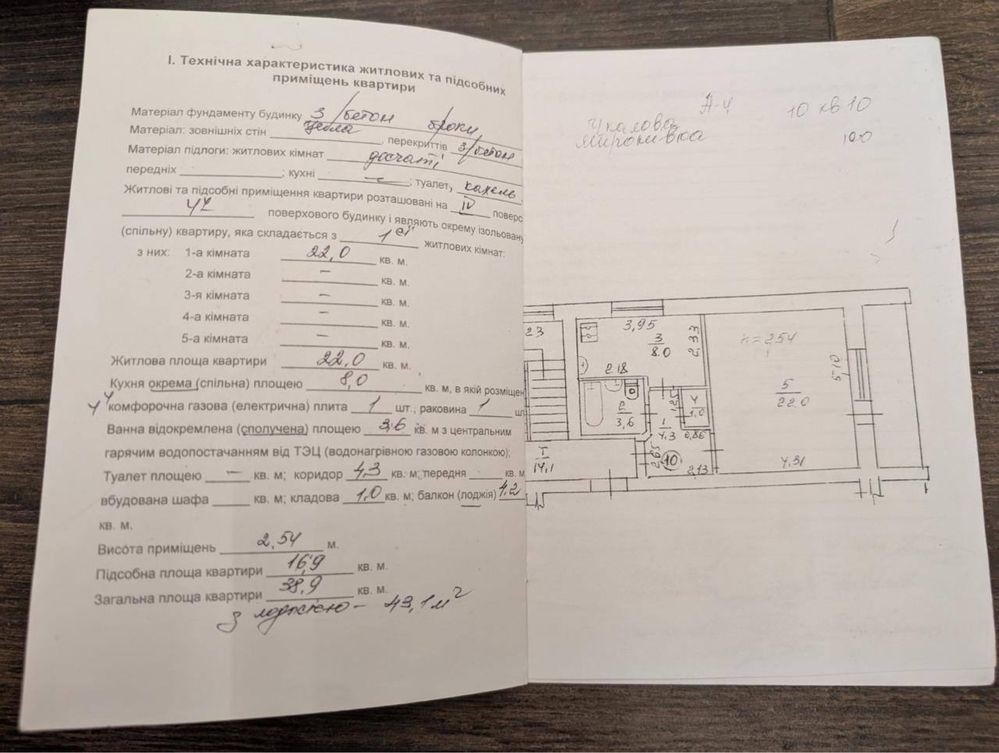 І. Технічна характеристика житлових та підсобних
приміщень квартири
Матеріал фундаменту будинку З/бетон блоки
Матеріал: зовнішніх стін цегла перекриттів З/бетон
Матеріал підлоги: житлових кімнат досчаті
передніх ; кухні – ; туалет, кахель
Житлові та підсобні приміщення квартири розташовані на IV поверс
4х поверхового будинку і являють окрему ізольовану
(спільну) квартиру, яка складається з 1єї житлових кімнат:
з них: 1-а кімната 22,0 кв. м.
2-а кімната – кв. м.
3-я кімната – кв. м.
4-а кімната – кв. м.
5-а кімната – кв. м.
Житлова площа квартири 22,0 кв. м.
Кухня окрема (спільна) площею 8,0 кв. м, в якій розміщен
4х комфорочна газова (електрична) плита 1 шт., раковина 1 шт
Ванна відокремлена (сполучена) площею 3,6 кв. м з центральним
гарячим водопостачанням від ТЭЦ (водонагрівною газовою колонкою);
Туалет площею – кв. м; коридор 4,3 кв. м; передня кв. м
вбудована шафа кв. м; кладова 1,0 кв. м; балкон (лоджія) 4,2
кв. м.
Висота приміщень 2,54 м.
Підсобна площа квартири 16,9 кв. м.
Загальна площа квартири 38,9 кв. м.
з лоджією – 43,1 м²
А-4 10 кв 10
100
23
3,95
3
8.0
2.33
h=2.54
2.18
5.10
5
22.0
2
3,6
1
4.3
1.25
4
1.0
0,86
I
14,1
2.65
10
2,13
4.31